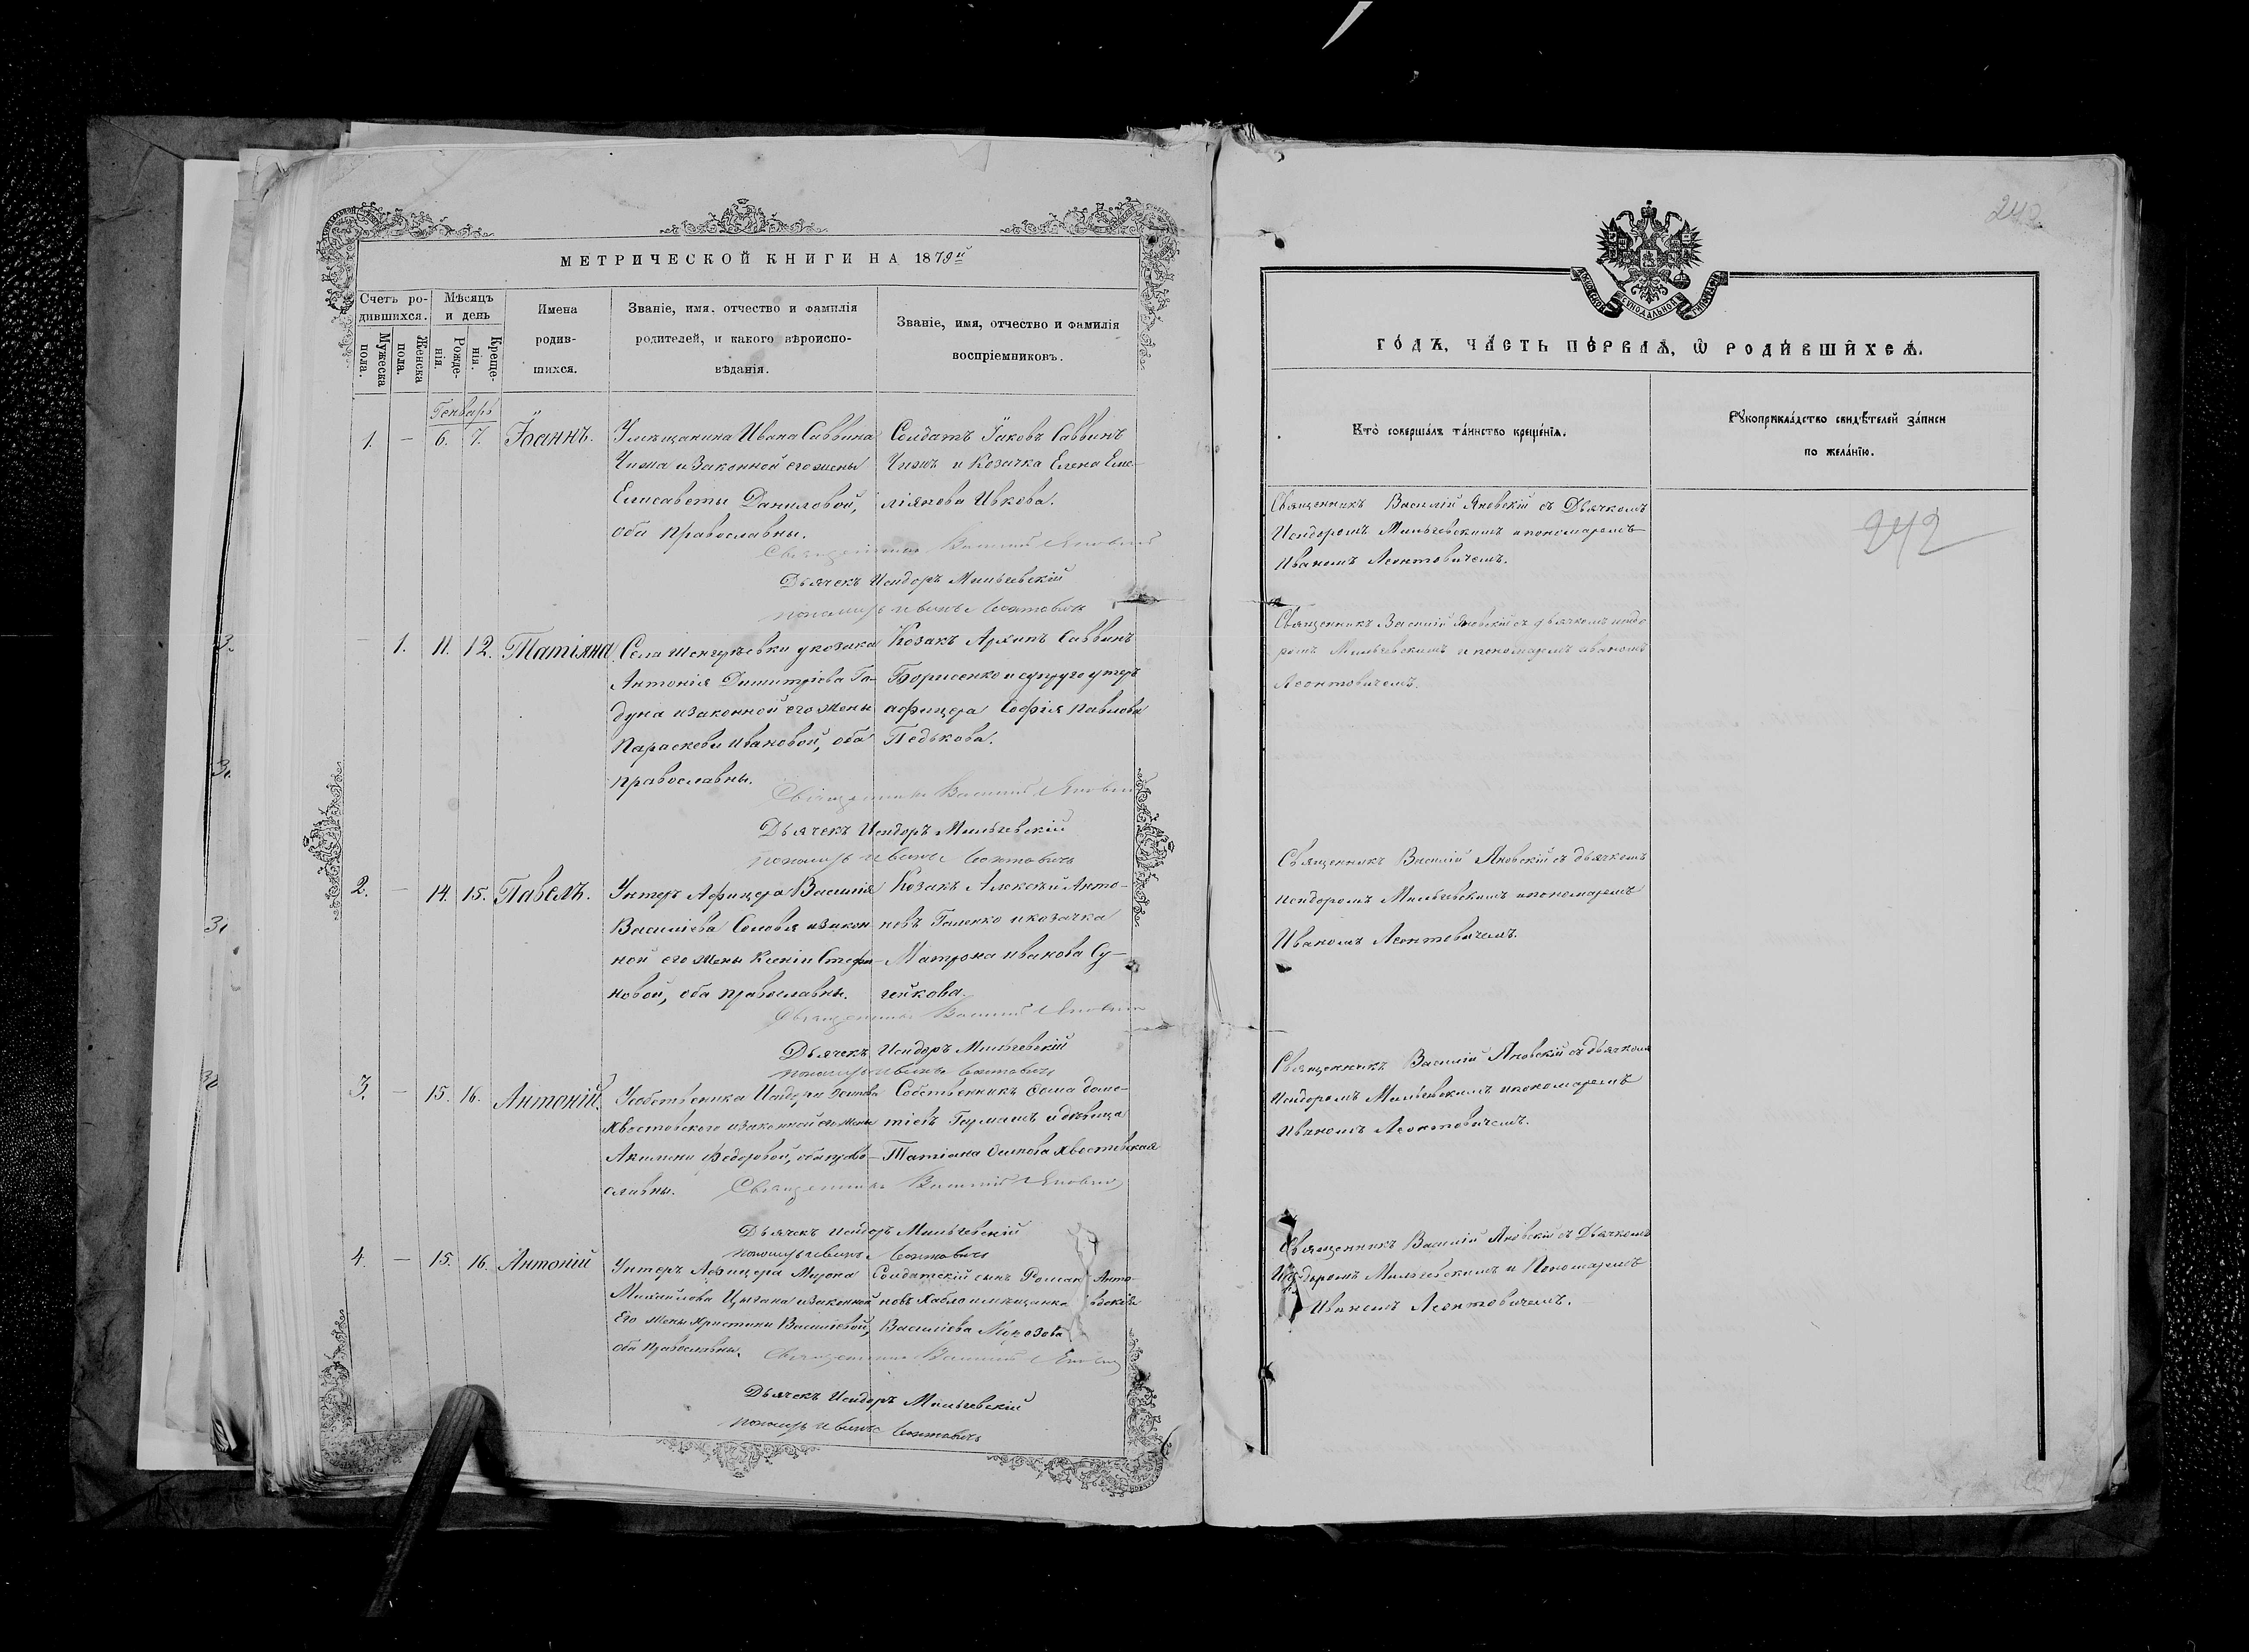 МЕТРИЧЕСКОЙ КНИГИ НА 1879й
Счетъ ро-
дившихся.
Мужеска
пола.
Женска
пола.
Мѣсяцъ
и день
Рожде-
нія.
Креще-
нія.
Имена
родив-
шихся.
Званіе, имя, отчество и фамилія
родителей, и какого вѣроиспо-
вѣданія.
Званіе, имя, отчество и фамилія
воспріемниковъ.
Генварь
1. — 6. 7. Іоаннъ.
Умѣщанина Ивана Саввина
Чижа и законной его жены
Елисаветы Даниловой,
оба православны.
Солдатъ Іаковъ Саввинъ
Чижъ и Козачка Елена Еме-
ліянова Ивкова.
Священникъ Василій Яновскій
Дьячекъ Исидоръ Мильчевскій
пономарь Иванъ Леонтовичъ
1. 11. 12. Татіяна
Села укозака
Антонія Димитріева Га-
дуна и законной его жены
Параскевы Ивановой, оба
православны.
Козакъ Архипъ Саввинъ
Борисенко и супруга унтеръ
афицера Софія Павлова
Педькова.
Священникъ Василій Яновскій
Дьячекъ Исидоръ Мильчевскій
пономарь Иванъ Леонтовичъ
2. — 14. 15. Павелъ.
Унтеръ Афицера Василія
Василіева Соловья и закон-
ной его жены Ксеніи Стефа-
новой, оба православны.
Козакъ Алексѣй Анто-
новъ Галенко и козачка
Матрона Иванова Су-
гейкова.
Священникъ Василій Яновскій
Дьячекъ Исидоръ Мильчевскій
пономарь Иванъ Леонтовичъ
3. — 15. 16. Антоній.
Усобственика Исидора Осипова
Хвостовского и законной его жены
Акилины Федоровой, оба право-
славны.
Собственникъ дома доме-
тіевъ Гармашъ и девица
Татіана Осипова Хвостовская
Священникъ Василій Яновскій
Дьячекъ Исидоръ Мильчевскій
пономарь Иванъ Леонтовичъ
4. — 15. 16. Антоній
Унтеръ Афицера Мирона
Михайлова Цыгана и законной
его жены Христины Василіевой,
оба православны.
Солдатскій сынъ Роман Анто-
новъ Хабло и мѣщанка
Василіева Морозова
Священникъ Василій Яновскій
Дьячекъ Исидоръ Мильчевскій
пономарь Иванъ Леонтовичъ
242
ГОДЪ, ЧАСТЬ ПЕРВАЯ, Ѡ РОДИВШИХСЯ.
Кто совершалъ таинство крещенія.
Рукоприкладство свидѣтелей записи
по желанію.
242
Священникъ Василій Яновскій съ Дьячкомъ
Исидоромъ Мильчевскимъ и пономаремъ
Иваномъ Леонтовичемъ.
Священникъ Василій Яновскій съ дьячкомъ Исидо
ромъ Мильчевскимъ и пономаремъ Иваномъ
Леонтовичемъ.
Священникъ Василій Яновскій съ дьячкомъ
Исидоромъ Мильчевскимъ и пономаремъ
Иваномъ Леонтовичемъ.
Священникъ Василій Яновскій съ дьячкомъ
Исидоромъ Мильчевскимъ и пономаремъ
Иваномъ Леонтовичемъ.
Священникъ Василій Яновскій съ Дьячкомъ
Исидоромъ Мильчевскимъ и Пономаремъ
Иваномъ Леонтовичемъ.